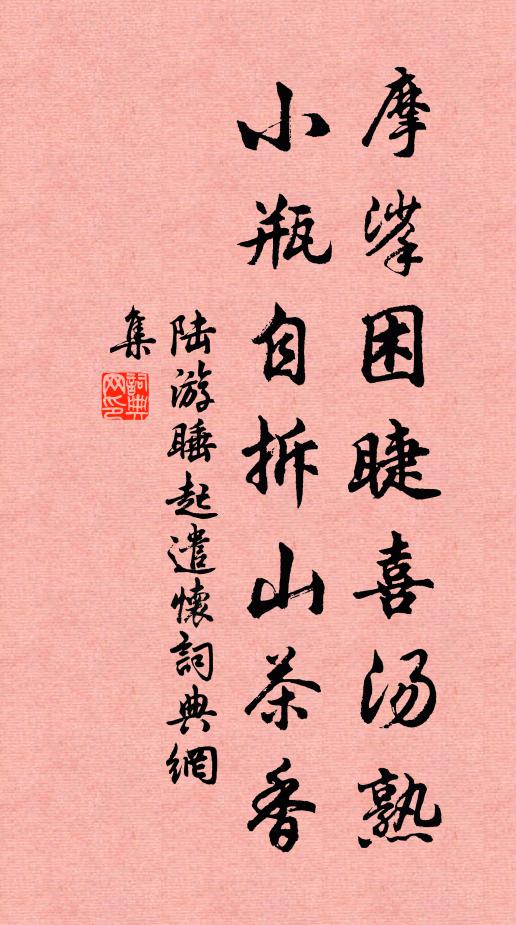 摩挲困睫喜汤熟
小瓶自拆山茶香
陆游睡起遣懷詞典網
集
詞典網印